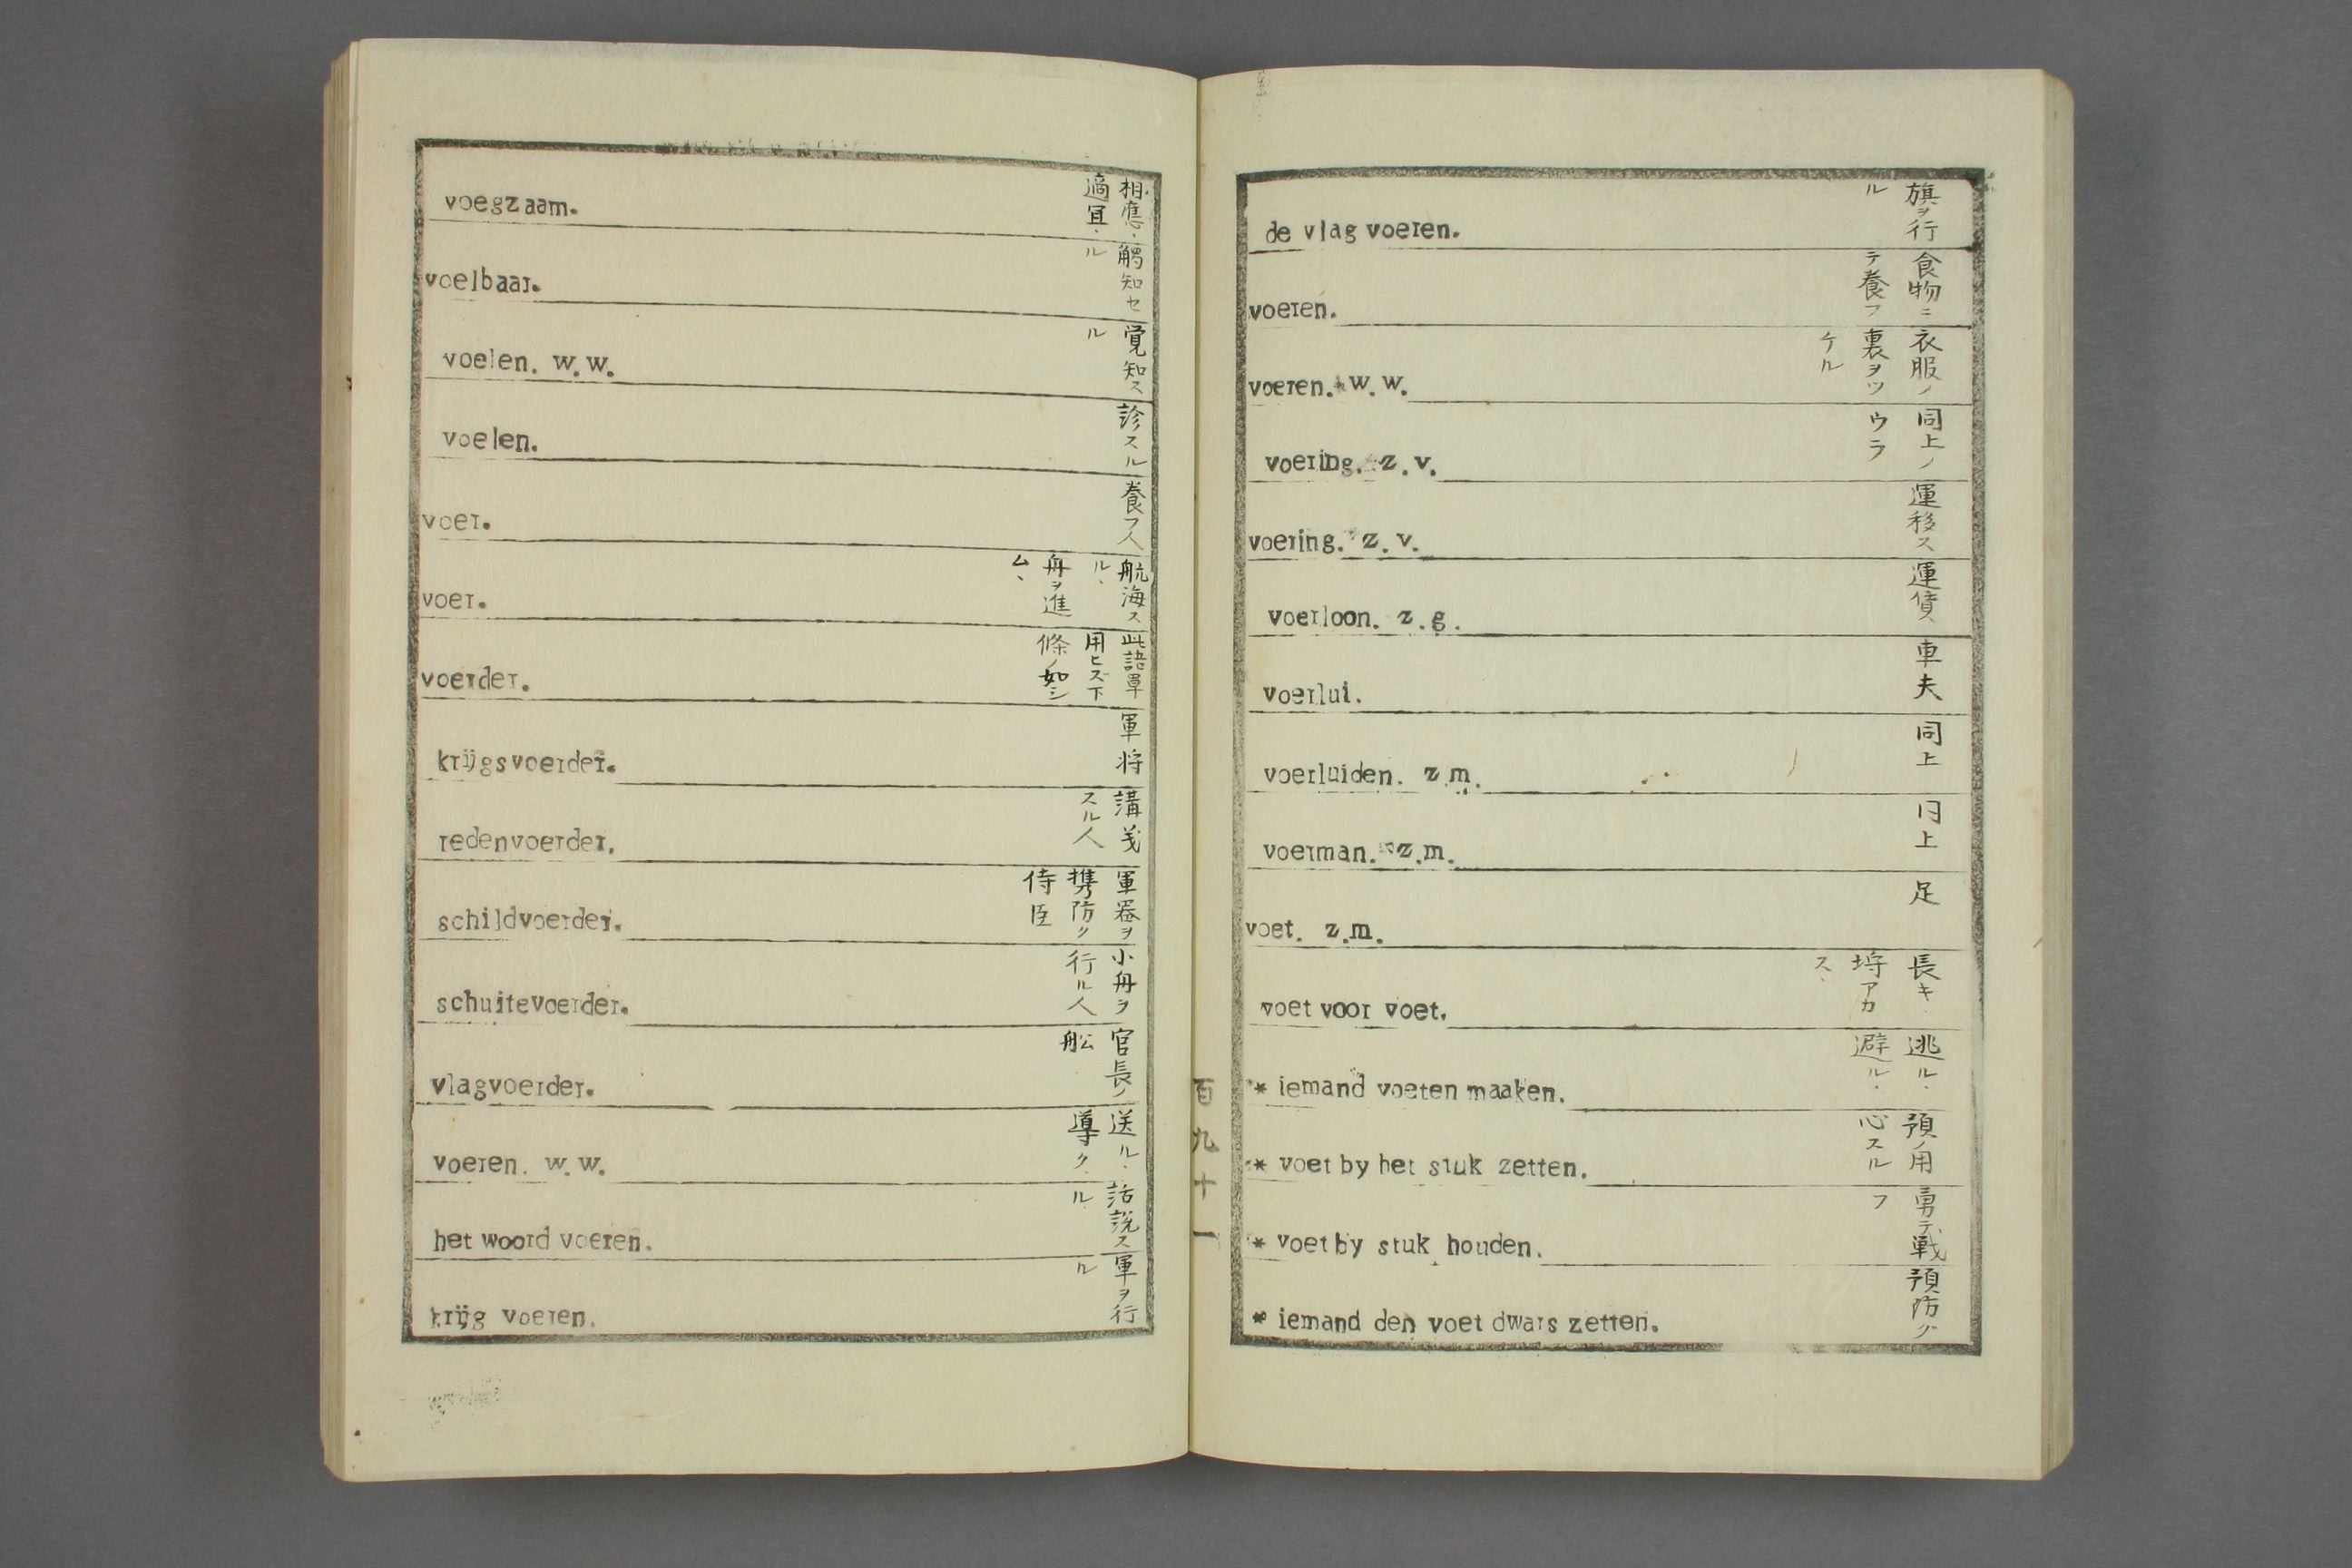 voegzaam. 相應、適宜、
voelbaar. 觸知セル
voelen. w.w. 覚知スル
voelen. 診スル
voer. 養フ人
voer. 航海スル、舟ヲ進ム、
voerder. 此語單用ヒズ下條ノ如シ
krijgsvoerder. 軍将
redenvoerder. 講義スル人
schildvoerder. 軍器ヲ携防ク侍臣
schuitevoerder. 小舟ヲ行ル人
vlagvoerder. 官長ノ舩
voeren. w.w. 送ル、導ク
het woord voeren. 話説スル
krijg voeren. 軍ヲ行ル
百九十一
de vlag voeren. 旗ヲ行ル
voeren. 食物ニテ養フ
voeren. w.w. 衣服ノ裏ヲツケル
voering. z.v. 同上ノウラ
voering. z.v. 運移ス
voerloon. z.g. 運賃
voerlui. 車夫
voerluiden. z.m. 同上
voerman. z.m. 同上
voet. z.m. 足
voet voor voet. 長キ埒アカス、
* iemand voeten maaken. 逃ル、避ル、
* voet by het stuk zetten. 預ノ用心スル
* voet by stuk houden. 勇テ戦フ
* iemand den voet dwars zetten. 預防ク